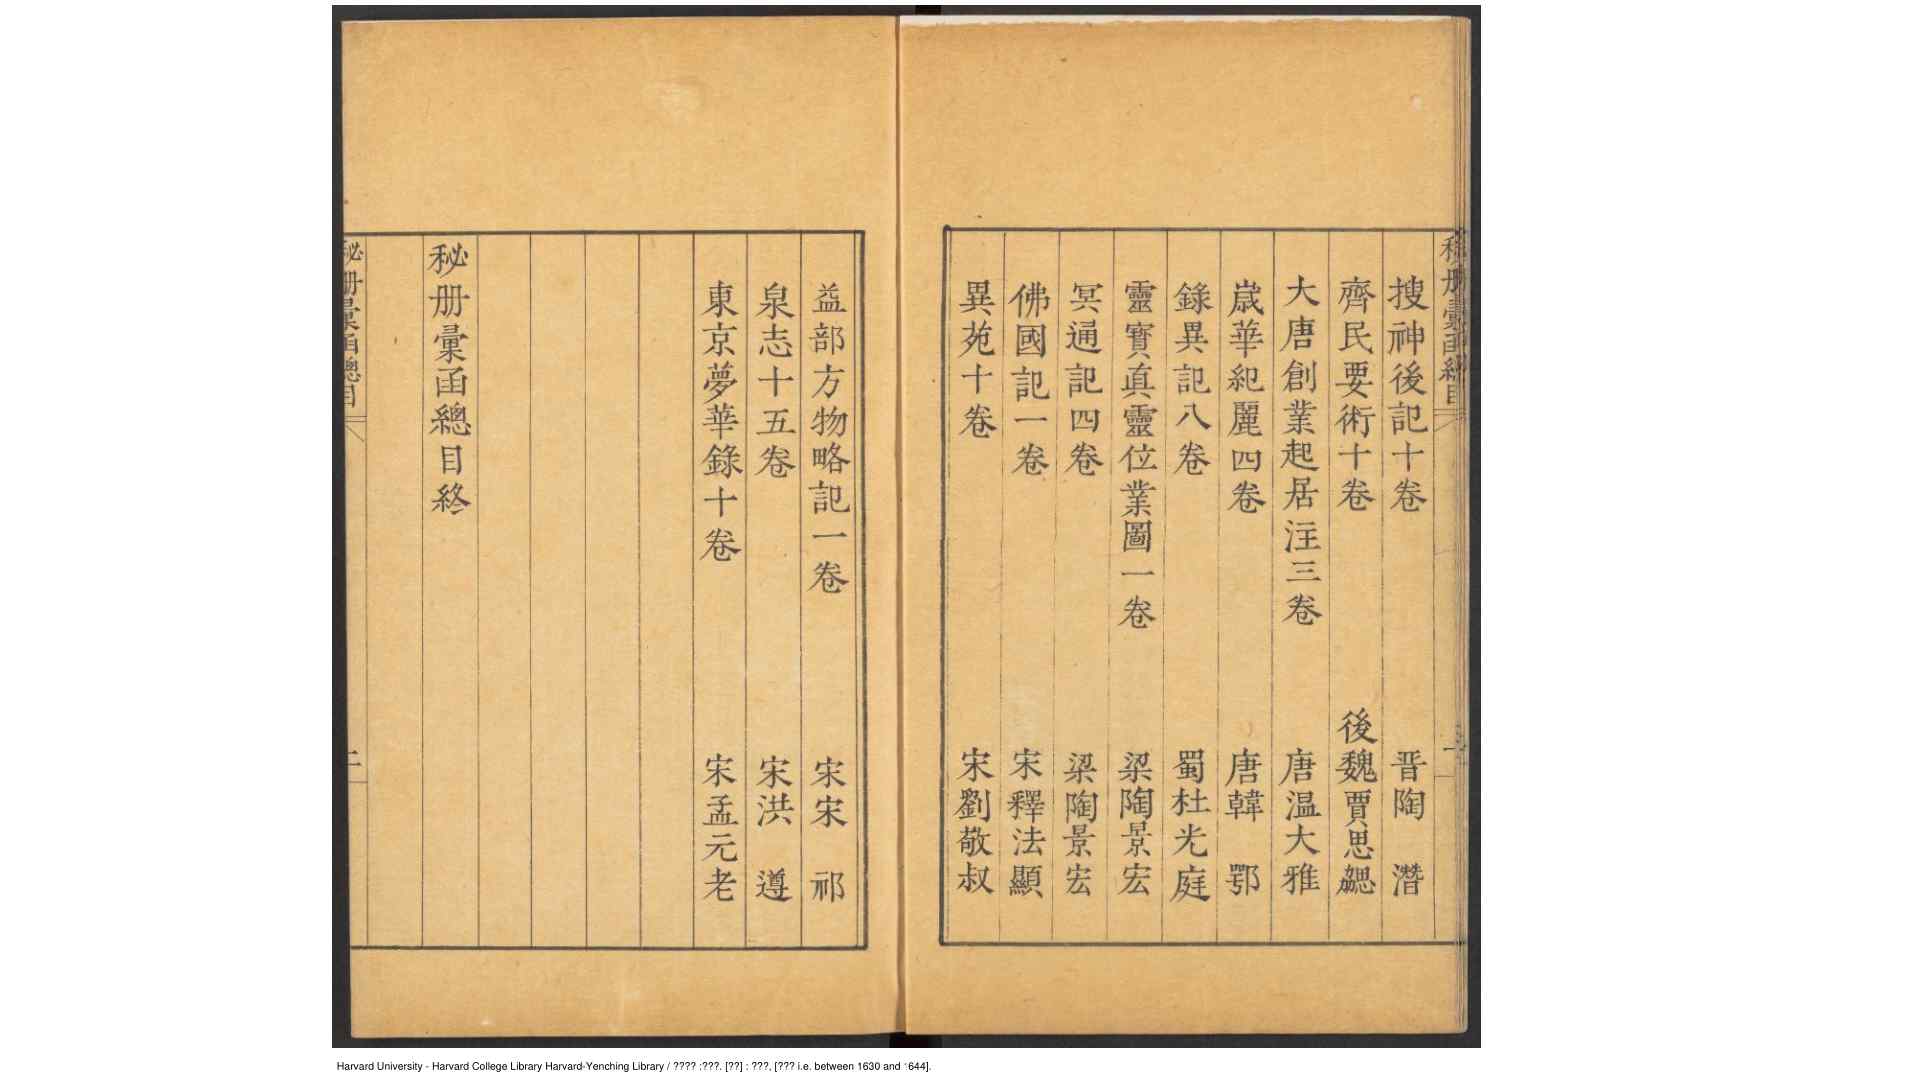 搜神後記十卷 晋陶潛
齊民要術十卷 後魏賈思勰
大唐創業起居注三卷 唐温大雅
歲華紀麗四卷 唐韓鄂
錄異記八卷 蜀杜光庭
靈寶真靈位業圖一卷 梁陶景宏
冥通記四卷 梁陶景宏
佛國記一卷 宋釋法顯
異苑十卷 宋劉敬叔
益部方物略記一卷 宋宋祁
泉志十五卷 宋洪遵
東京夢華錄十卷 宋孟元老
秘册彙函總目終
秘册彙函總目 二
Harvard University - Harvard College Library Harvard-Yenching Library / ???? :???. [??] : ???, [??? i.e. between 1630 and 1644].